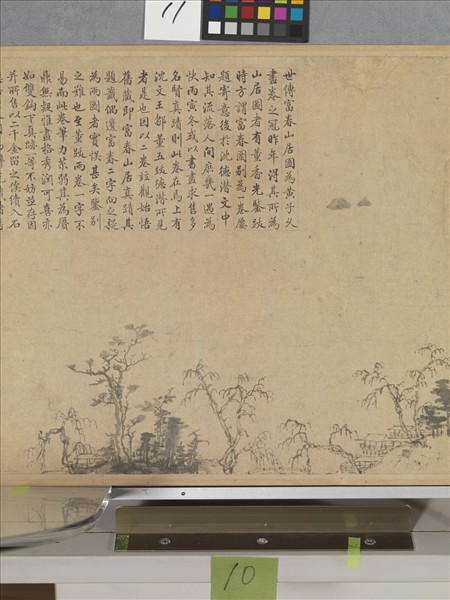 世傳富春山居圖為黃子久
畫卷之冠昨年得其所為
山居圖者有董香光鑒跋
時方謂富春圖別為一卷屢
題寄意後於沈德潛文中
知其流落人間庶幾一遇為
快丙寅冬或以書畫求售多
名賢真蹟則此卷在焉上有
沈文王鄒董五跋德潛所見
者是也因以二卷竝觀始悟
舊藏即富春山居真蹟其
題籤偶遺富春二字向之疑
為兩圖者實悞甚矣鑒別
之難也至董跋兩卷一字不
易而此卷筆力苶弱其為贗
鼎無疑惟畫格秀潤可喜亦
如雙鉤下真蹟一等不妨並存因
并所售以二千金留之俟續入石
11
10